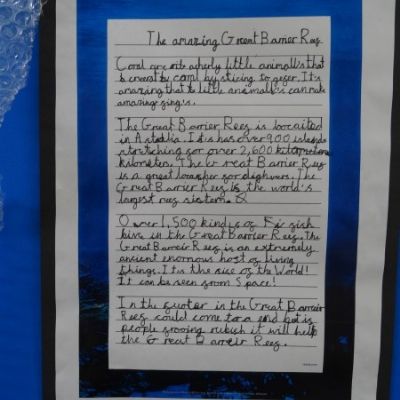 The amazing Great Barrier Reef
Coral are actually little animalls that
is creat by coral by sticing to geser. It's
amazing that the little animalls can make
amazinge ging's.
The Great Barrier Reef is locaited
in Astrailia. It's has over 900 islands
stretching for over 2,600 kilometers
kilometer. The Great Barrier Reef
is a great loacashon for dighvers. The
Great Barrier Reef is the world's
largest reef sistem.
Over 1,500 kindes of fish
live in the Great Barrier Reef. The
Great Barrair Reef is an extremely
ancient enormous host of living
things. It is the size of the World!
It can be seen from Space!
In the futer in the Great Barrair
Reef could come to a end but if
people rubish it will help
the Great Barrair Reef.